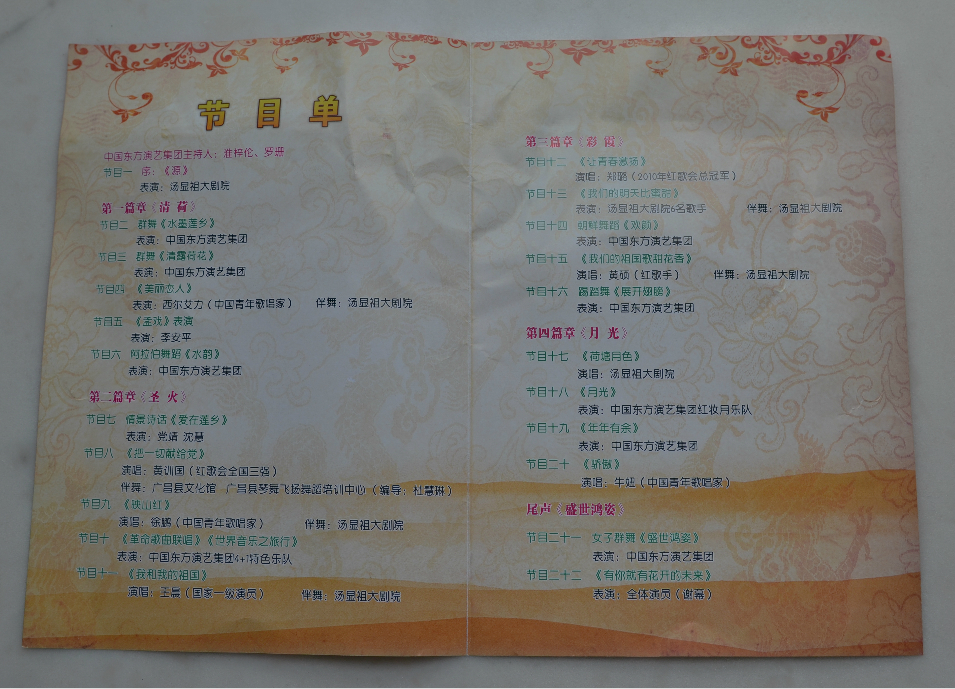 节目单
中国东方演艺集团主持人：淮梓伦、罗珊
节目一 序：《源》
表演：汤显祖大剧院
第一篇章《清 荷》
节目二 群舞《水墨莲乡》
表演：中国东方演艺集团
节目三 群舞《清露荷花》
表演：中国东方演艺集团
节目四 《美丽恋人》
表演：西尔艾力（中国青年歌唱家） 伴舞：汤显祖大剧院
节目五 《孟戏》表演
表演：李安平
节目六 阿拉伯舞蹈《水韵》
表演：中国东方演艺集团
第二篇章《圣 火》
节目七 情景诗话《爱在莲乡》
表演：党靖 沈慧
节目八 《把一切献给党》
演唱：黄训国（红歌会全国三强）
伴舞：广昌县文化馆 广昌县琴舞飞扬舞蹈培训中心（编导：杜慧琳）
节目九 《映山红》
演唱：徐鹏（中国青年歌唱家） 伴舞：汤显祖大剧院
节目十 《革命歌曲联唱》《世界音乐之旅行》
表演：中国东方演艺集团4+1特色乐队
节目十一 《我和我的祖国》
演唱：王晨（国家一级演员） 伴舞：汤显祖大剧院
第三篇章《彩 霞》
节目十二 《让青春激扬》
演唱：郑璐（2010年红歌会总冠军）
节目十三 《我们的明天比蜜甜》
表演：汤显祖大剧院6名歌手 伴舞：汤显祖大剧院
节目十四 朝鲜舞蹈《欢鼓》
表演：中国东方演艺集团
节目十五 《我们的祖国歌甜花香》
演唱：黄硕（红歌手） 伴舞：汤显祖大剧院
节目十六 踢踏舞《展开翅膀》
表演：中国东方演艺集团
第四篇章《月 光》
节目十七 《荷塘月色》
演唱：汤显祖大剧院
节目十八 《月光》
表演：中国东方演艺集团红妆月乐队
节目十九 《年年有余》
表演：中国东方演艺集团
节目二十 《骄傲》
演唱：牛妞（中国青年歌唱家）
尾声《盛世鸿姿》
节目二十一 女子群舞《盛世鸿姿》
表演：中国东方演艺集团
节目二十二 《有你就有花开的未来》
表演：全体演员（谢幕）